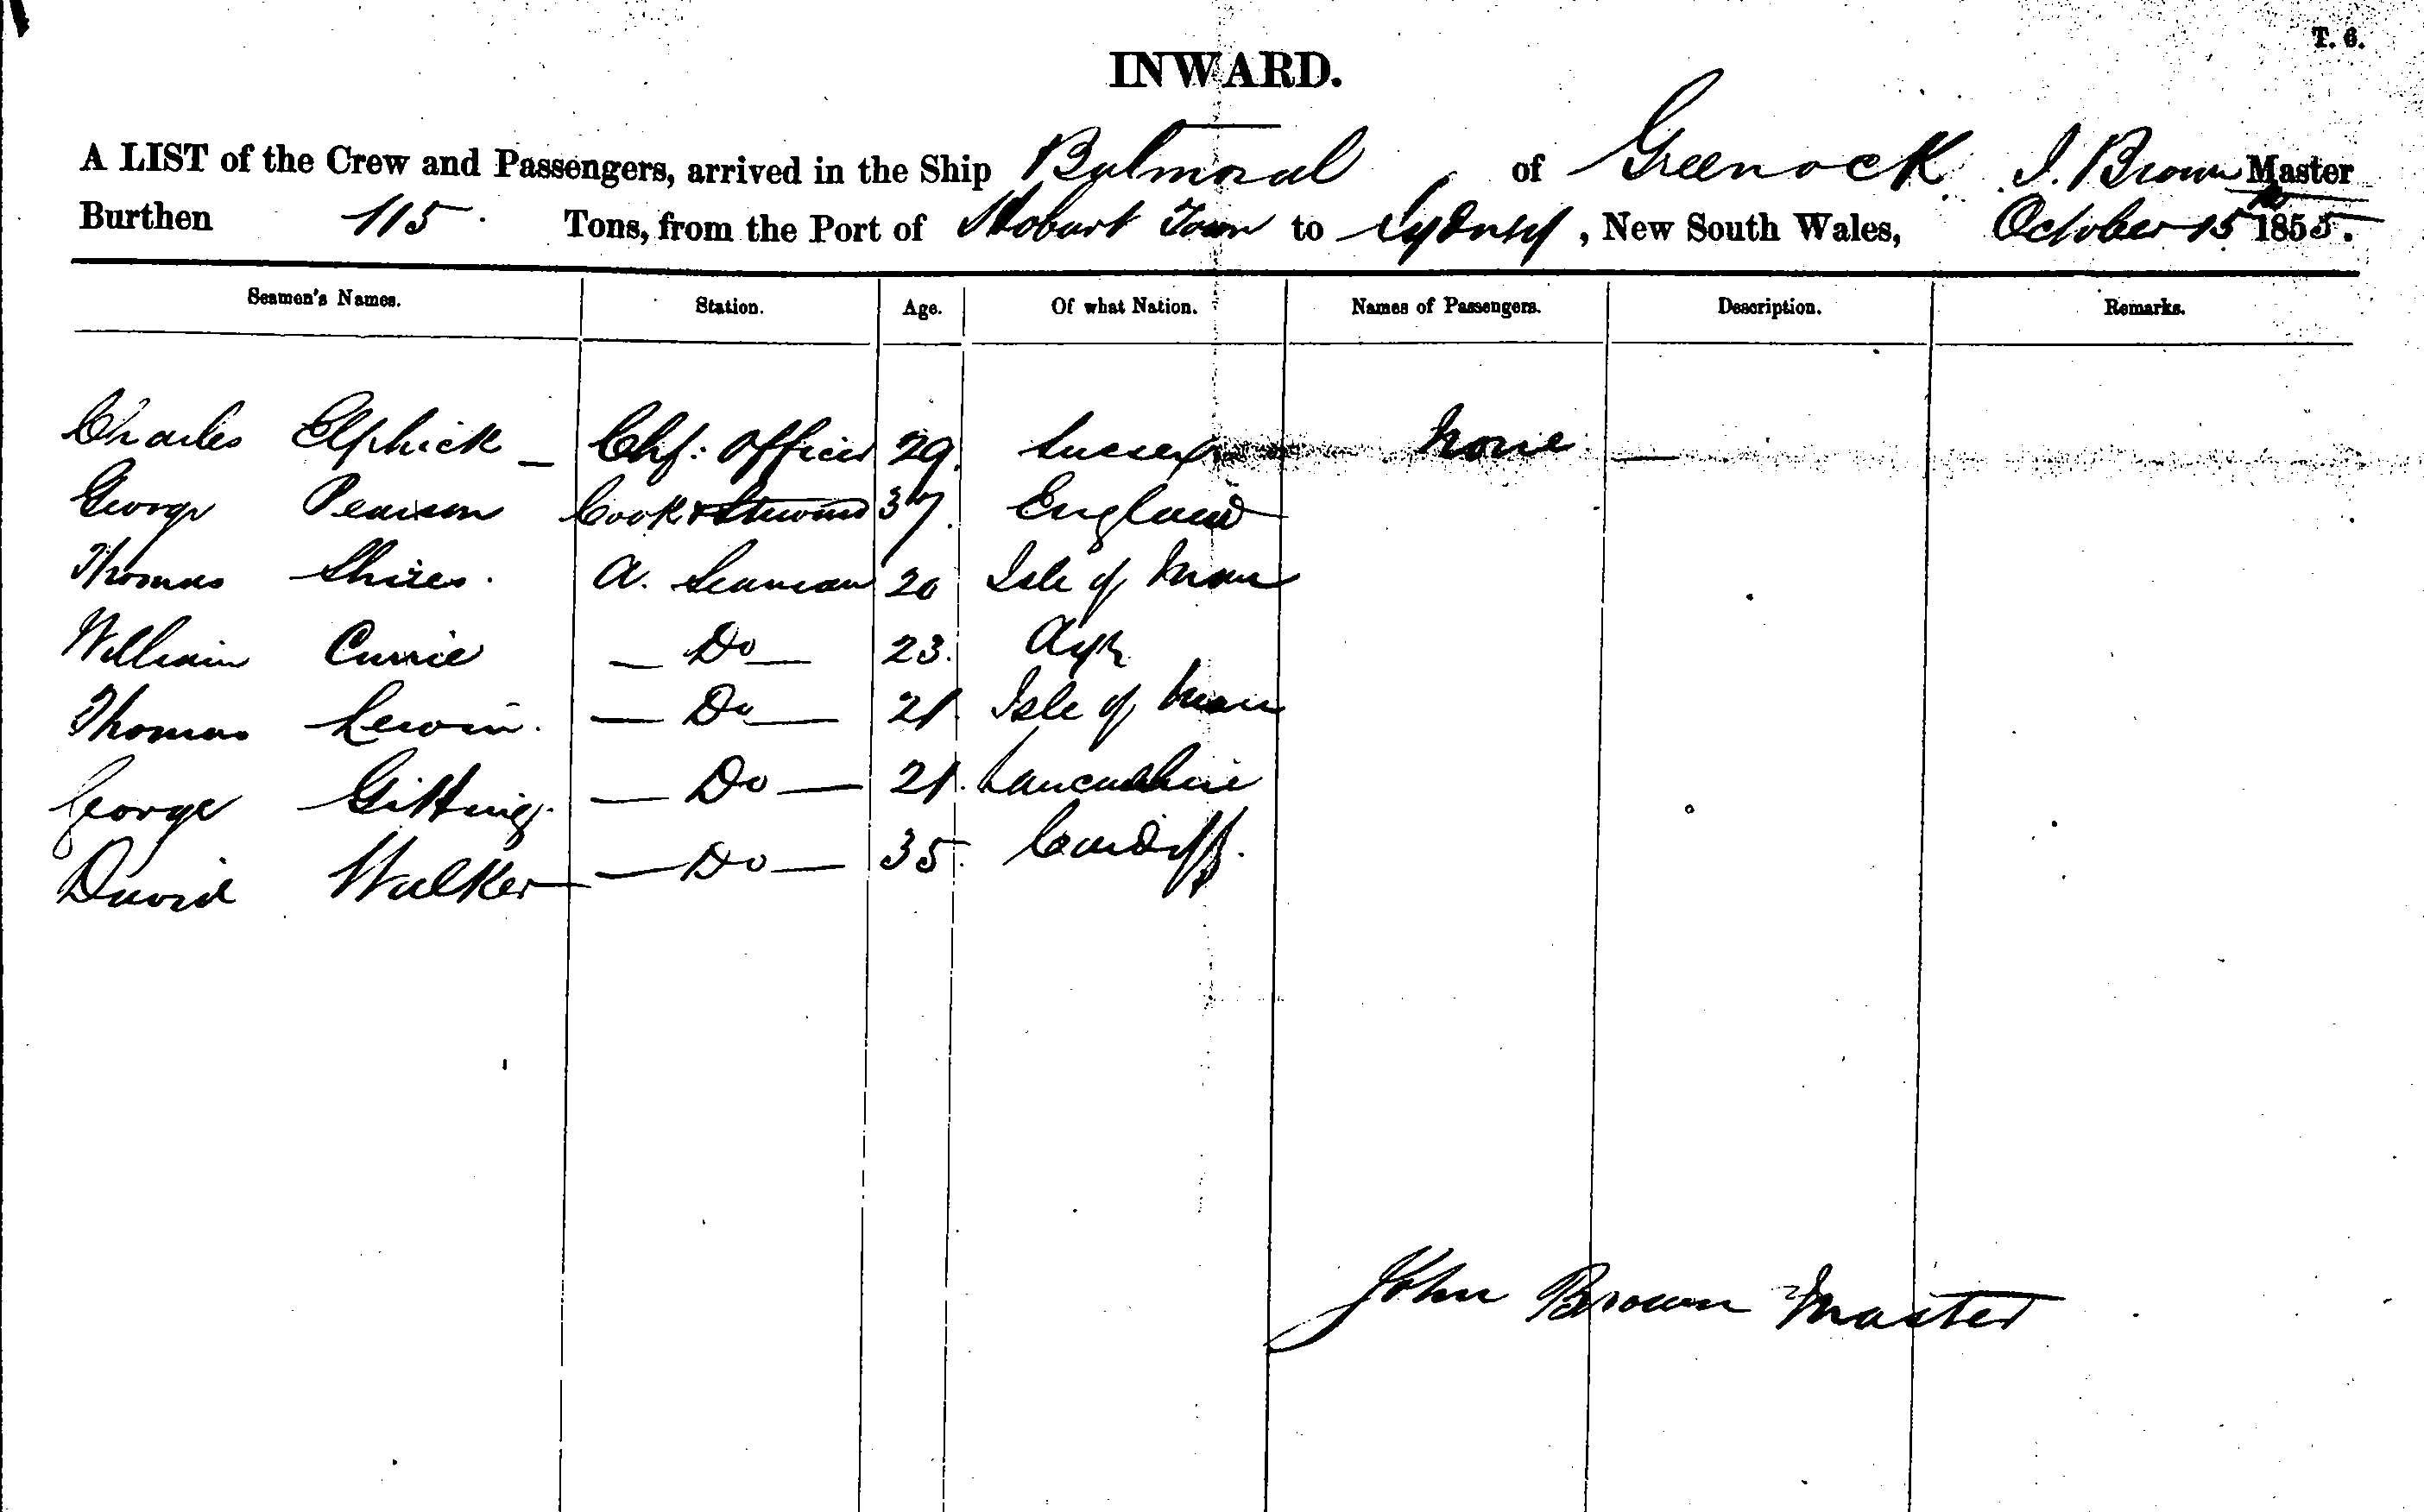 T. 6.
INWARD.
A LIST of the Crew and Passengers, arrived in the Ship Balmoral of Greenock J. Brown Master
Burthen 115 Tons, from the Port of Hobart Town to Sydney, New South Wales, October 15th 1855.
Seamen's Names. Station. Age. Of what Nation. Names of Passengers. Description. Remarks.
Charles Elphick — Chf: Officer 29. Sussex None —
George Pearson Cook & Steward 37. England
Thomas Shires. A. Seaman 20 Isle of Man
William Currie — Do — 23. Ayr
Thomas Lewin. — Do — 21. Isle of Man
George Gitting. — Do — 21. Lancashire
David Walker — Do — 35. Cardiff.
John Brown Master